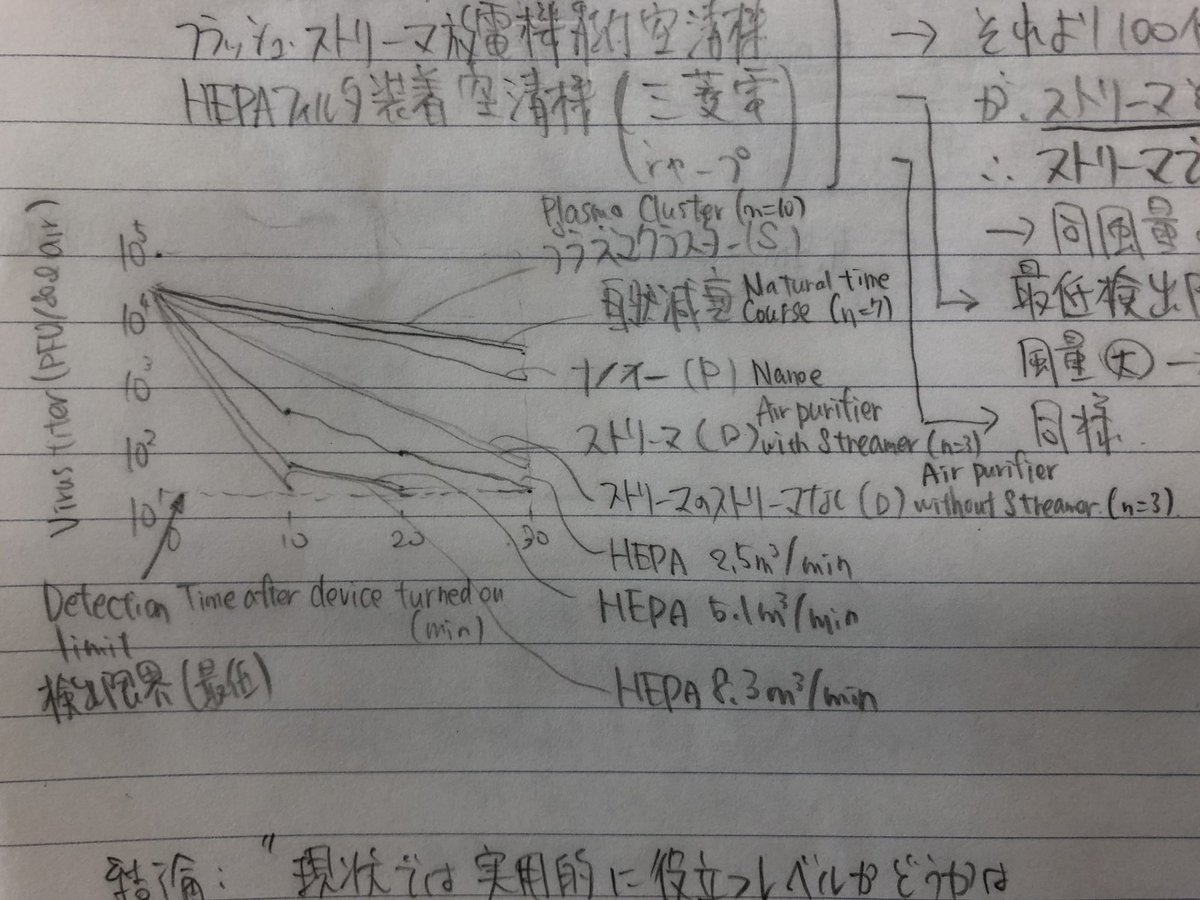 フラッシュ・ストリーマ放電機能付空清機
HEPAフィルタ装着空清機(三菱電
シャープ)
→ それより100
が、ストリーマ
∴ ストリーマ
→ 同風量
→ 最低検出
風量(大)→
→ 同様
Plasma Cluster (n=10)
プラズマクラスター(S)
自然減衰 Natural time
Course (n=7)
ナノイー (P) Nanoe
ストリーマ (D) Air purifier
with Streamer (n=3)
ストリーマのストリーマなし (D) Air purifier
without Streamer (n=3)
HEPA 2.5m³/min
HEPA 5.1m³/min
HEPA 8.3m³/min
Virus titer (PFU/80l air)
10⁵
10⁴
10³
10²
10¹
0 10 20 30
Detection
limit
Time after device turned on
(min)
検出限界(最低)
結論: "現状では実用的に役立つレベルかどうかは